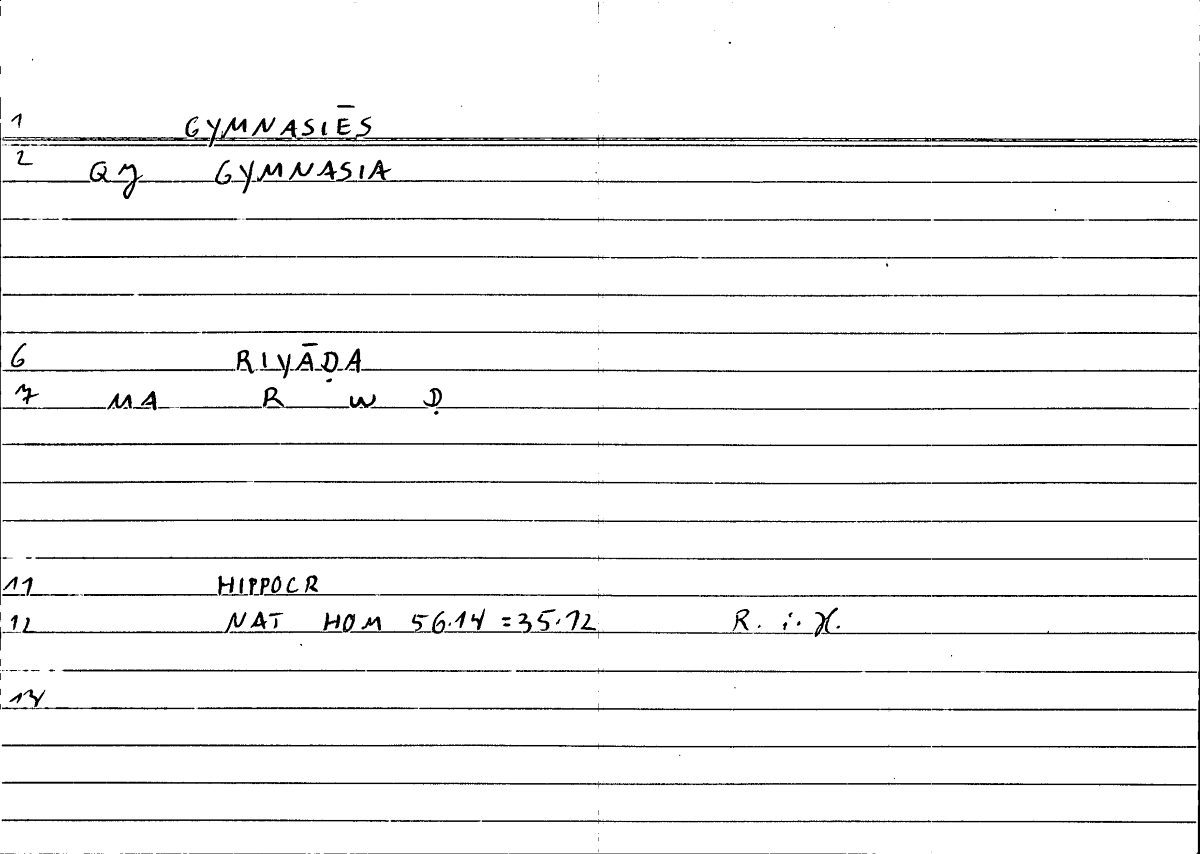 1 GYMNASIĒS
2 QY GYMNASIA
6 RIYĀḌA
7 MA R W Ḍ
11 HIPPOCR
12 NAT HOM 56.14 = 35.12 R. i.
14